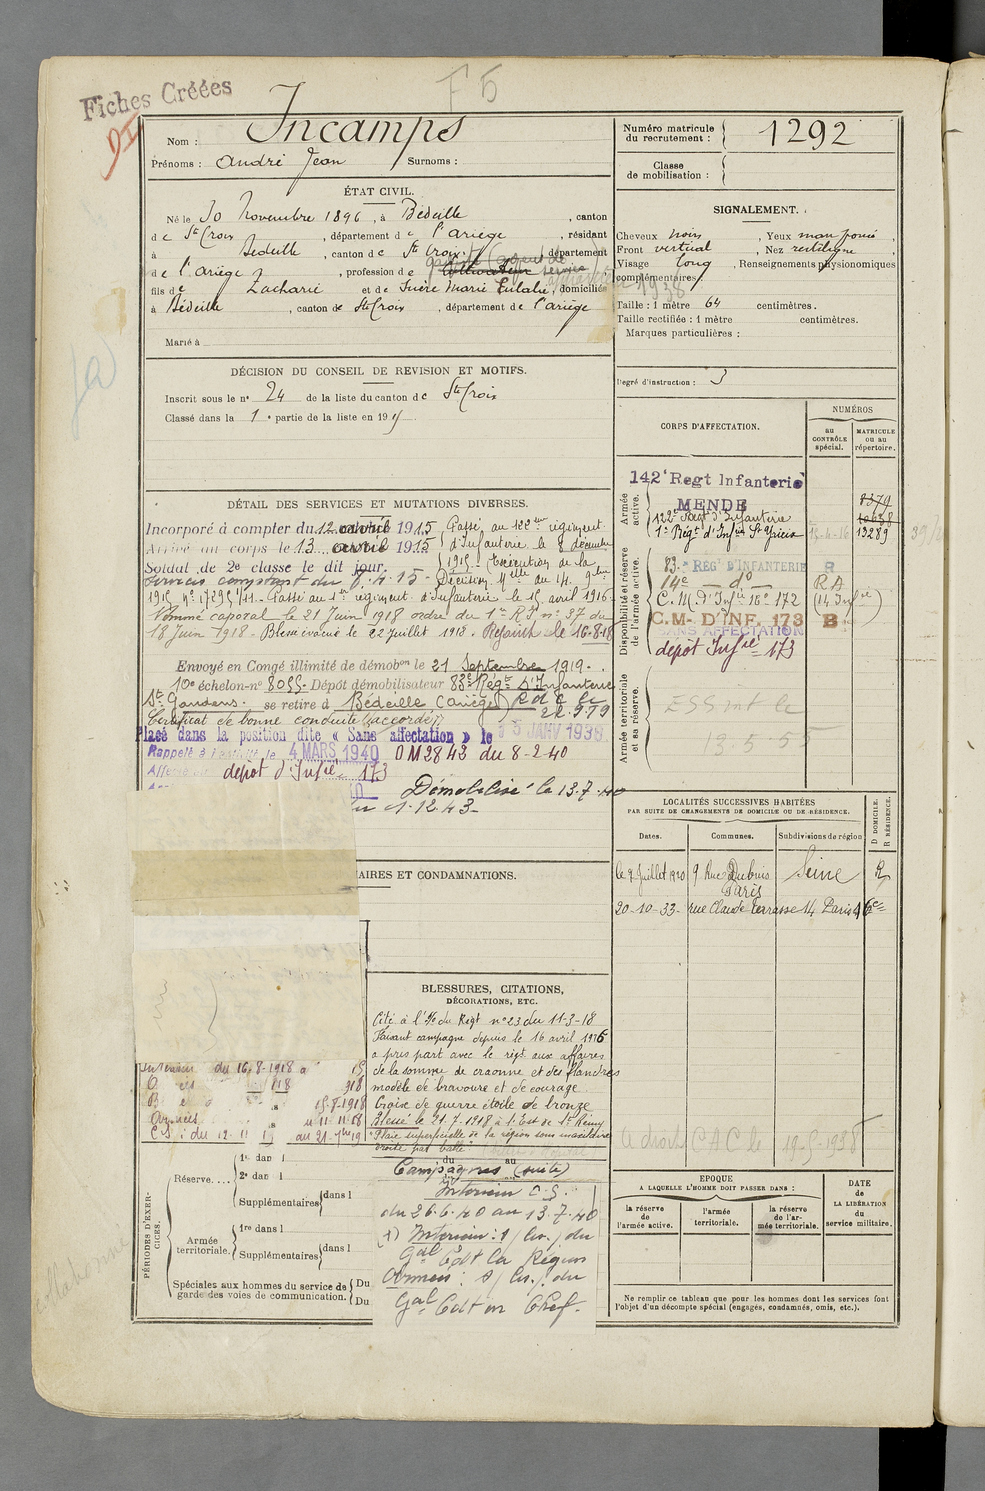 Fiches Créées
F5
Nom : Incamps
Prénoms : André Jean Surnoms :
Numéro matricule du recrutement : 1292
Classe de mobilisation :
ÉTAT CIVIL.
Né le 30 Novembre 1896, à Bédeille, canton
de Ste Croix, département de l'Ariège, résidant
à Bedeille, canton de Ste Croix, département
de l'Ariège, profession de cultivateur
fils de Zacharie et de Marie Eulalie, domiciliés
à Bédeille, canton de Ste Croix, département de l'ariège
Marié à
SIGNALEMENT.
Cheveux noirs, Yeux
Front vertical, Nez rectiligne
Visage long, Renseignements physionomiques
complémentaires
1938
Taille : 1 mètre 64 centimètres.
Taille rectifiée : 1 mètre centimètres.
Marques particulières :
Degré d'instruction : 3
DÉCISION DU CONSEIL DE REVISION ET MOTIFS.
Inscrit sous le n° 24 de la liste du canton de Ste Croix
Classé dans la 1e partie de la liste en 19
CORPS D'AFFECTATION.
NUMÉROS
au CONTRÔLE spécial.
MATRICULE ou au répertoire.
Armée active.
142e Regt Infanterie
MENDE
8379
122e Regt d'Infanterie
1er Régt d'Infie St Yrieix
13289
Disponibilité et réserve de l'armée active.
83e RÉGt D'INFANTERIE R
14e do RA
C. M. D'Infie 16e 172
C.M. D'INF. 173 B
SANS AFFECTATION
depot Infie 173
Armée territoriale et sa réserve.
13-5-55
DÉTAIL DES SERVICES ET MUTATIONS DIVERSES.
Incorporé à compter du 12 avril 1915 Passé au 122eme régiment
Arrivé au corps le 13 avril 1915 d'Infanterie le 8 décembre
Soldat de 2e classe le dit jour. 1915 - Exécution de la
services comptant du 8.4.15 - Décision Melle du 14. 9bre
1915 n° 17295 1/11 - Passé au 1er régiment d'Infanterie le 15 avril 1916
Nommé caporal le 21 Juin 1918 ordre du 1er R.I. n° 37 du
18 Juin 1918. Blessé évacué le 22 Juillet 1918. Rejoint le 16-8-18
Envoyé en Congé illimité de démobon le 21 Septembre 1919.
10e échelon n° 8055. Dépôt démobilisateur 83e Régt D'Infanterie
St Gaudens. se retire à Bédeille (Ariège) R d C le
22.9.19
Certificat de bonne conduite "accordé"
Placé dans la position dite « Sans affectation » le 15 JANV 1938
Rappelé à l'activité le 4 MARS 1940 OM 2843 du 8-2-40
Affecté au depot d'Infie 173
Démobilisé le 13-7-40
du 1.12.43-
LOCALITÉS SUCCESSIVES HABITÉES
PAR SUITE DE CHANGEMENTS DE DOMICILE OU DE RÉSIDENCE.
Dates. Communes. Subdivisions de région D DOMICILE. R RÉSIDENCE.
le 9 Juillet 1920 9 Rue Dubuis Paris Seine R
20-10-33- rue Claude Terrasse 14 Paris
AIRES ET CONDAMNATIONS.
BLESSURES, CITATIONS,
DÉCORATIONS, ETC.
Cité à l'O/e du Régt n° 23 du 11-3-18
Faisant campagne depuis le 16 avril 1916
a pris part avec le régt aux affaires
de la somme de craonne et des flandres
modèle de bravoure et de courage
Croix de guerre étoile de bronze
Blessé le 21.7.1918 à l'Est de St Rémy
"Plaie superficielle de la région sous maxillaire
droite par balle"
Intérieur du 16-8-1918 a
15-8-1918
Armées u 11 11 18
C.S. du 12 11 1 au 21 7bre 19
Campagnes (suite)
Intérieur C.S.
du 26.6.40 au 13.7.40
(1) Intérieur : du
Gal Cdt la Région
Armées : du
Gal Cdt en Chef.
PÉRIODES D'EXERCICES.
Réserve....
1re dans l
2e dans l
Supplémentaires dans l
du au
Armée territoriale.
1re dans l
Supplémentaires dans l
Spéciales aux hommes du service de garde des voies de communication.
Du
Du
a droit CAC le 19-5-1938
EPOQUE
A LAQUELLE L'HOMME DOIT PASSER DANS :
la réserve de l'armée active.
l'armée territoriale.
la réserve de l'armée territoriale.
DATE DE LA LIBÉRATION du service militaire.
Ne remplir ce tableau que pour les hommes dont les services font
l'objet d'un décompte spécial (engagés, condamnés, omis, etc.).